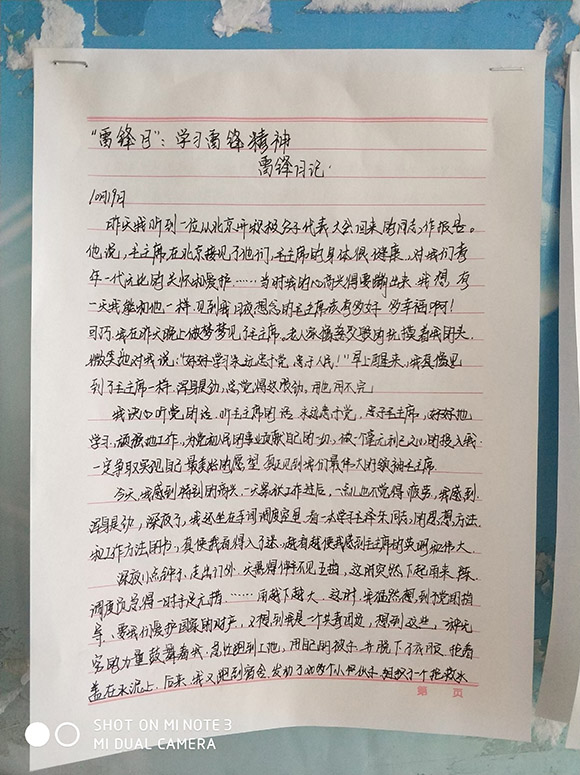 “雷锋日”：学习雷锋精神
雷锋日记
10月19日
昨天我听到一位从北京开积极分子代表大会回来的同志作报告。
他说，毛主席在北京接见了他们，毛主席的身体很健康，对我们青
年一代无比的关怀和爱护……当时我的心高兴得要蹦出来。我想，有
一天我能和他一样，见到我日夜想念的毛主席该有多好，多幸福啊！
可巧，我在昨天晚上做梦梦见了毛主席。老人家像慈父般的抚摸着我的头，
微笑地对我说：“好好学习永远忠于党，忠于人民！”早上醒来，我真像见
到了毛主席一样，浑身是劲，总觉得这股劲，用也用不完
我决心听党的话，听毛主席的话，永远忠于党，忠于毛主席，好好地
学习，顽强地工作，为党和人民的事业贡献自己的一切，做一个毫无利己之心的
一定争取实现自己最美好的愿望，真正见到我们最伟大的领袖毛主席
今天，我感到特别的高兴，一天紧张工作过后，一点儿也不觉得疲劳，我感到
浑身是劲，深夜了，我还坐在车间调度室里看一本学习毛泽东同志的思想方法
和工作方法的书，真使我看得入了迷，越看越使我感到毛主席的英明和伟大
深夜11点钟了，走出门外，天黑得伸手不见五指，这时突然下起雨来，陈
调度员觉得一时手足无措……雨越下越大，这时，我猛然想到了党的指
导，要我们爱护国家的财产，又想到我是一个共青团员，想到这些，一种无
穷的力量鼓舞着我，急忙跑到工地，用自己的被子，并脱下了衣服，抢着
盖在水泥上，后来，我又跑到宿舍，发动了20多个小伙子，组织了一个抢救水
第 页
SHOT ON MI NOTE 3
MI DUAL CAMERA